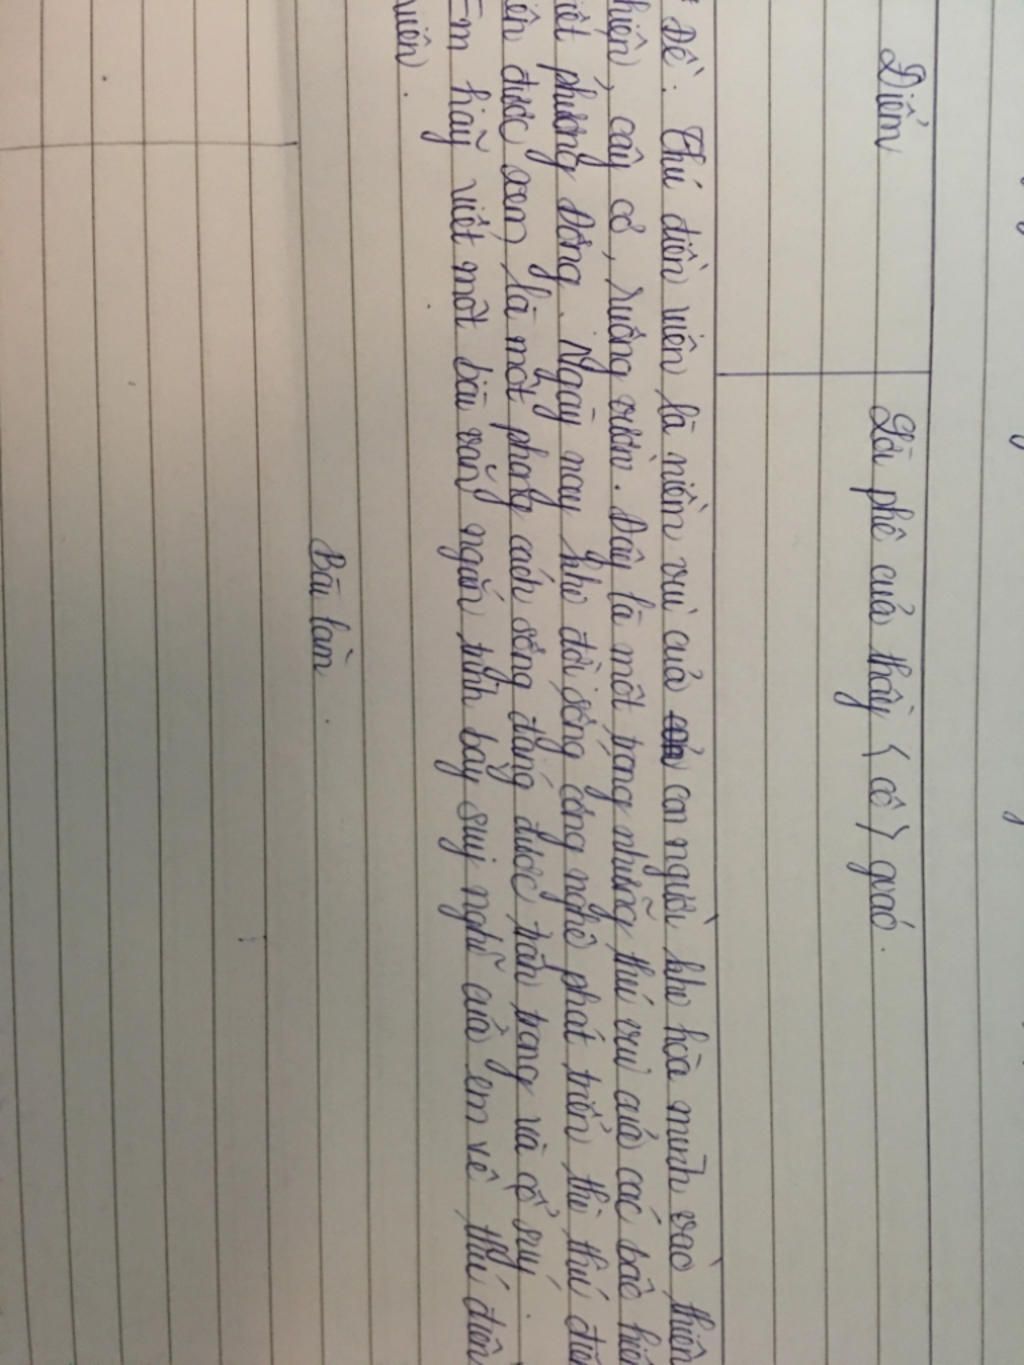 Điểm
Lời phê của thầy (cô) giáo.
* Đề: Thú điền viên là niềm vui của con người khi hòa mình vào thiên
nhiên, cây cỏ, ruộng vườn. Đây là một trong những thú vui của các bậc hiền
triết phương Đông. Ngày nay khi đời sống công nghệ phát triển thì thú điền
viên được xem là một phong cách sống đáng được trân trọng và cổ suý.
Em hãy viết một bài văn ngắn trình bày suy nghĩ của em về thú điền
viên.
Bài làm.